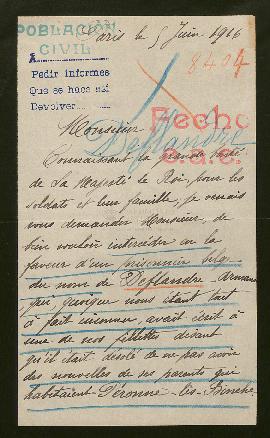 Paris le 5 Juin 1916
POBLACIÓN
CIVIL
8404
A
Pedir informes
Que se haga así
Devolver
Fecho
Deflandre
Monsieur
Connaissant la grande bonté
de Sa Majesté le Roi, pour les
soldats et leur famille, je venais
vous demander Monsieur, de
bien vouloir intercéder en la
faveur d'un prisonnier belge
du nom de Deflandre Armand
qui quoique nous étant tout
à fait inconnu, avait écrit à
une de nos fillettes disant
qu'il était désolé de ne pas avoir
des nouvelles de ses parents qui
habitaient Péronne-lès-Binche